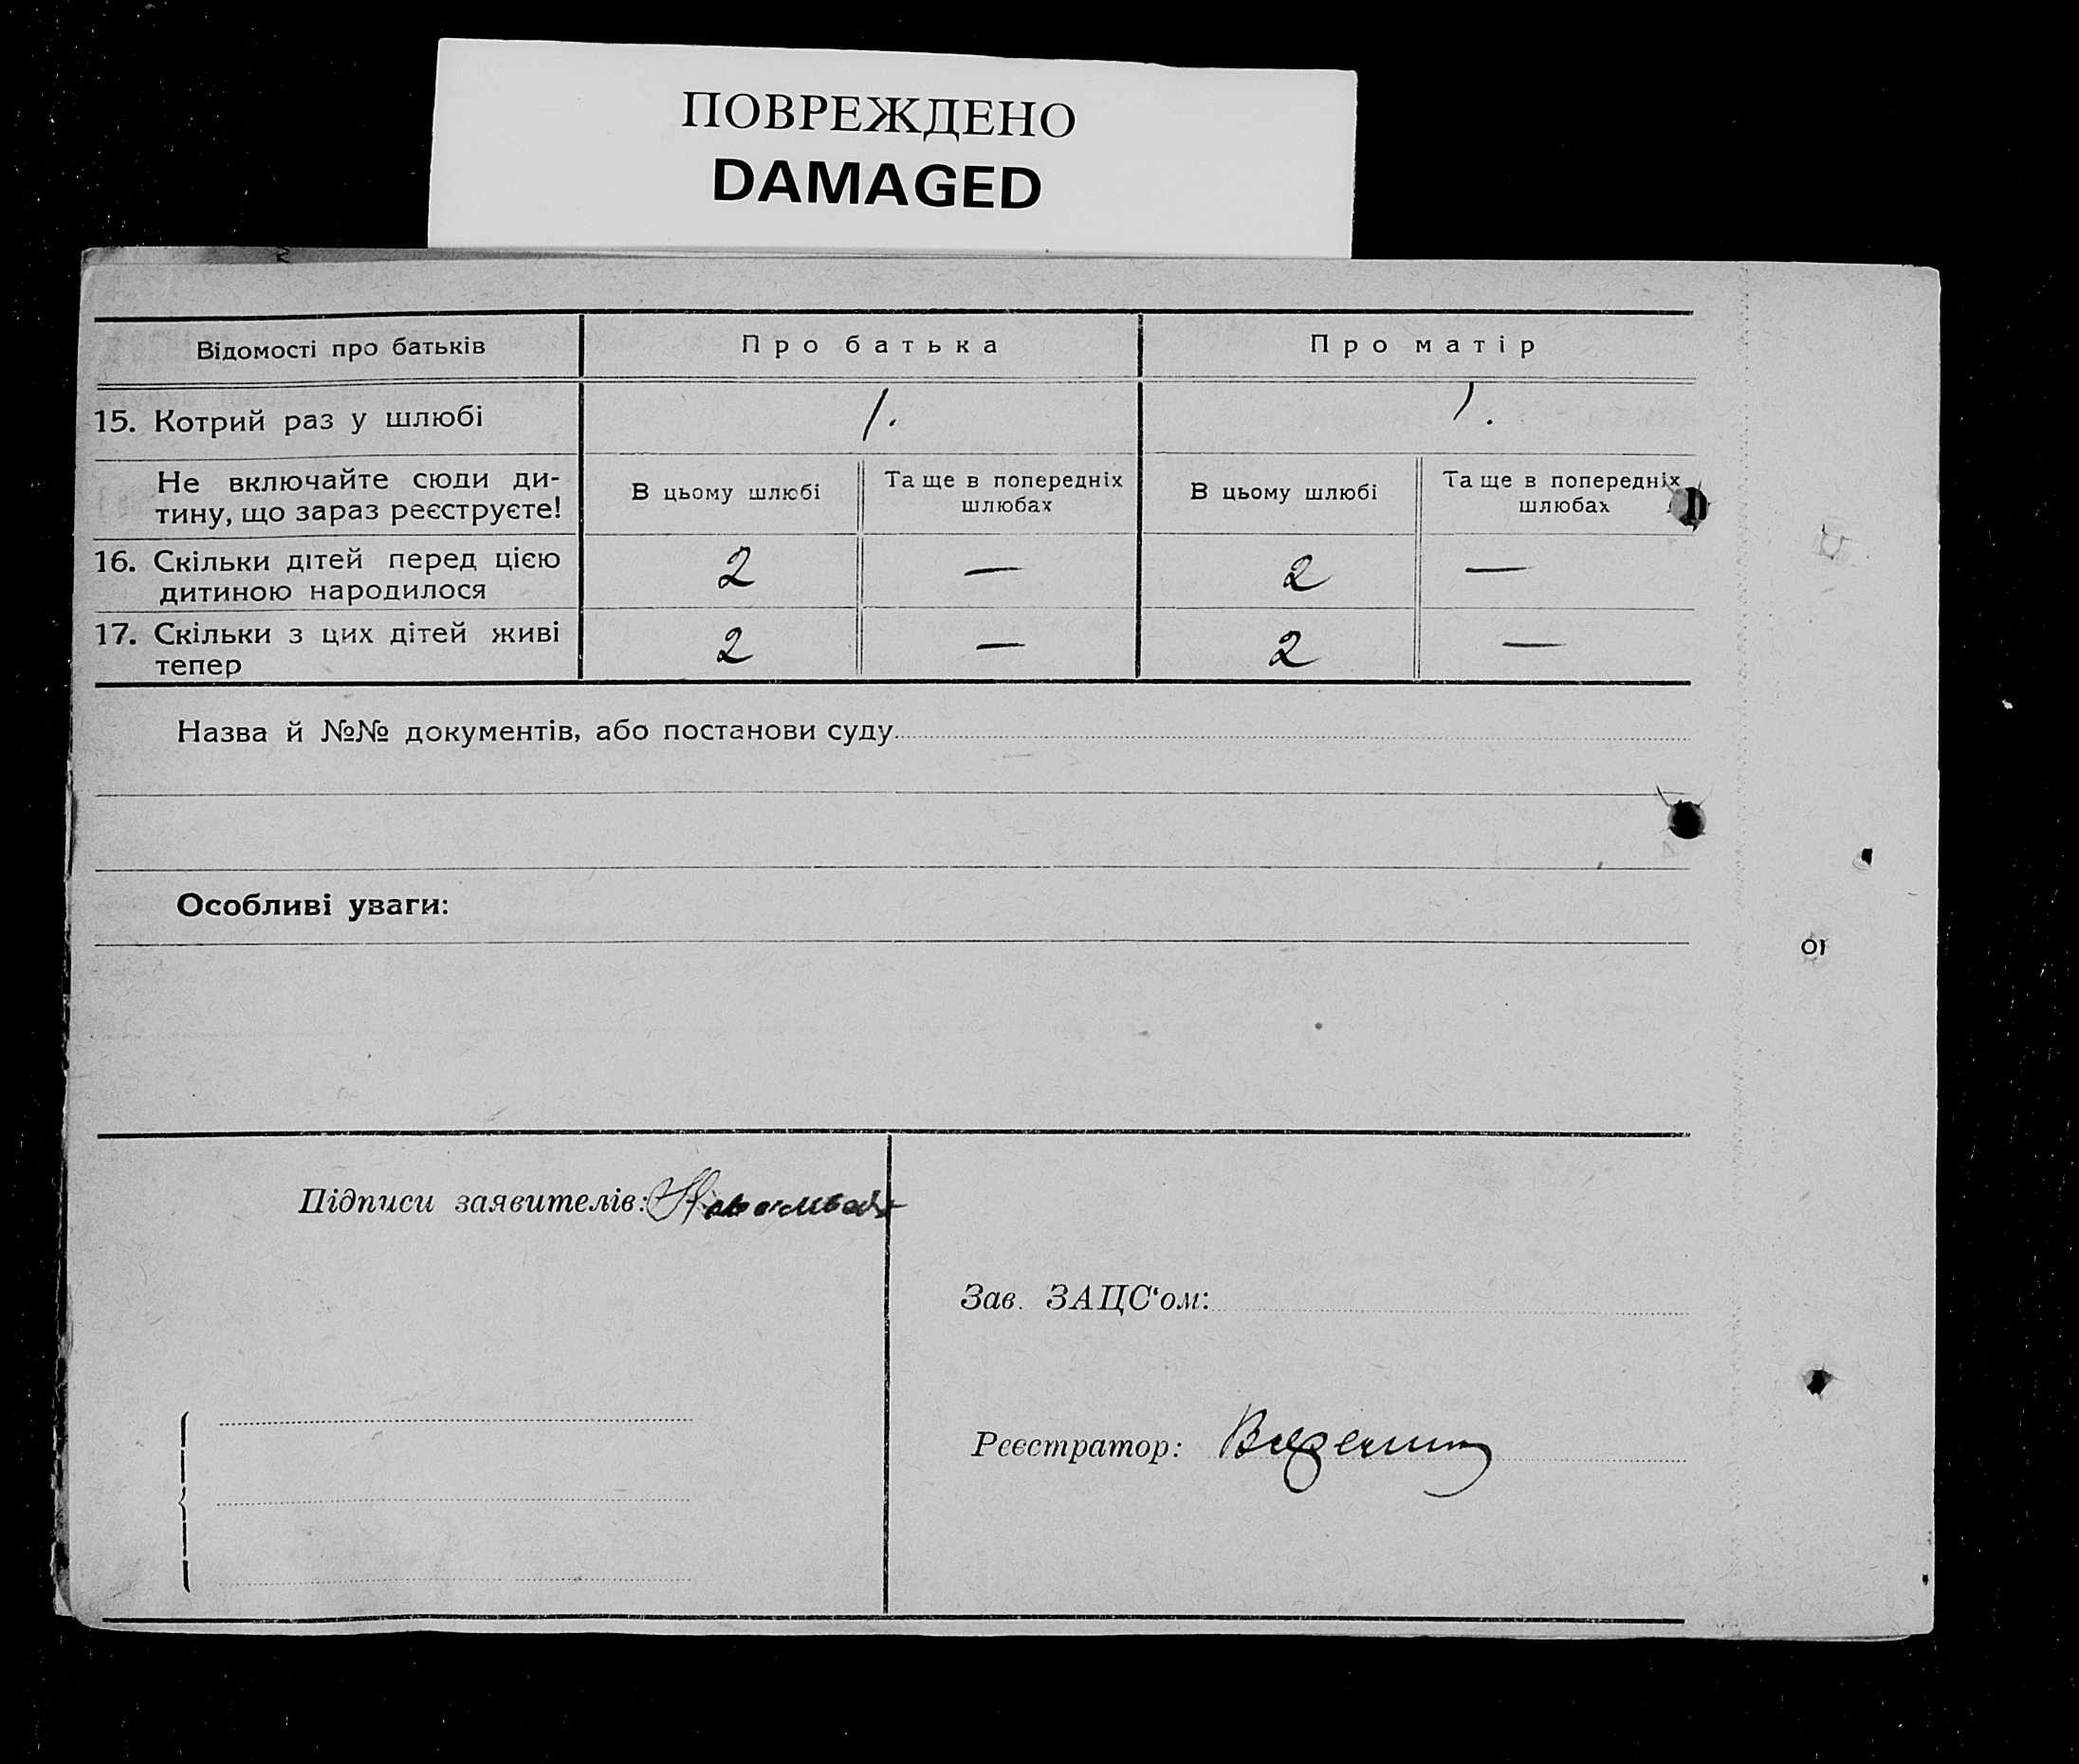 ПОВРЕЖДЕНО
DAMAGED
Відомості про батьків
Про батька
Про матір
15. Котрий раз у шлюбі
1.
1.
Не включайте сюди ди-
тину, що зараз реєструєте!
В цьому шлюбі
Та ще в попередніх
шлюбах
В цьому шлюбі
Та ще в попередніх
шлюбах
16. Скільки дітей перед цією
дитиною народилося
2
—
2
—
17. Скільки з цих дітей живі
тепер
2
—
2
—
Назва й №№ документів, або постанови суду
Особливі уваги:
Підписи заявителів:
Зав. ЗАЦС‘ом:
Реєстратор: